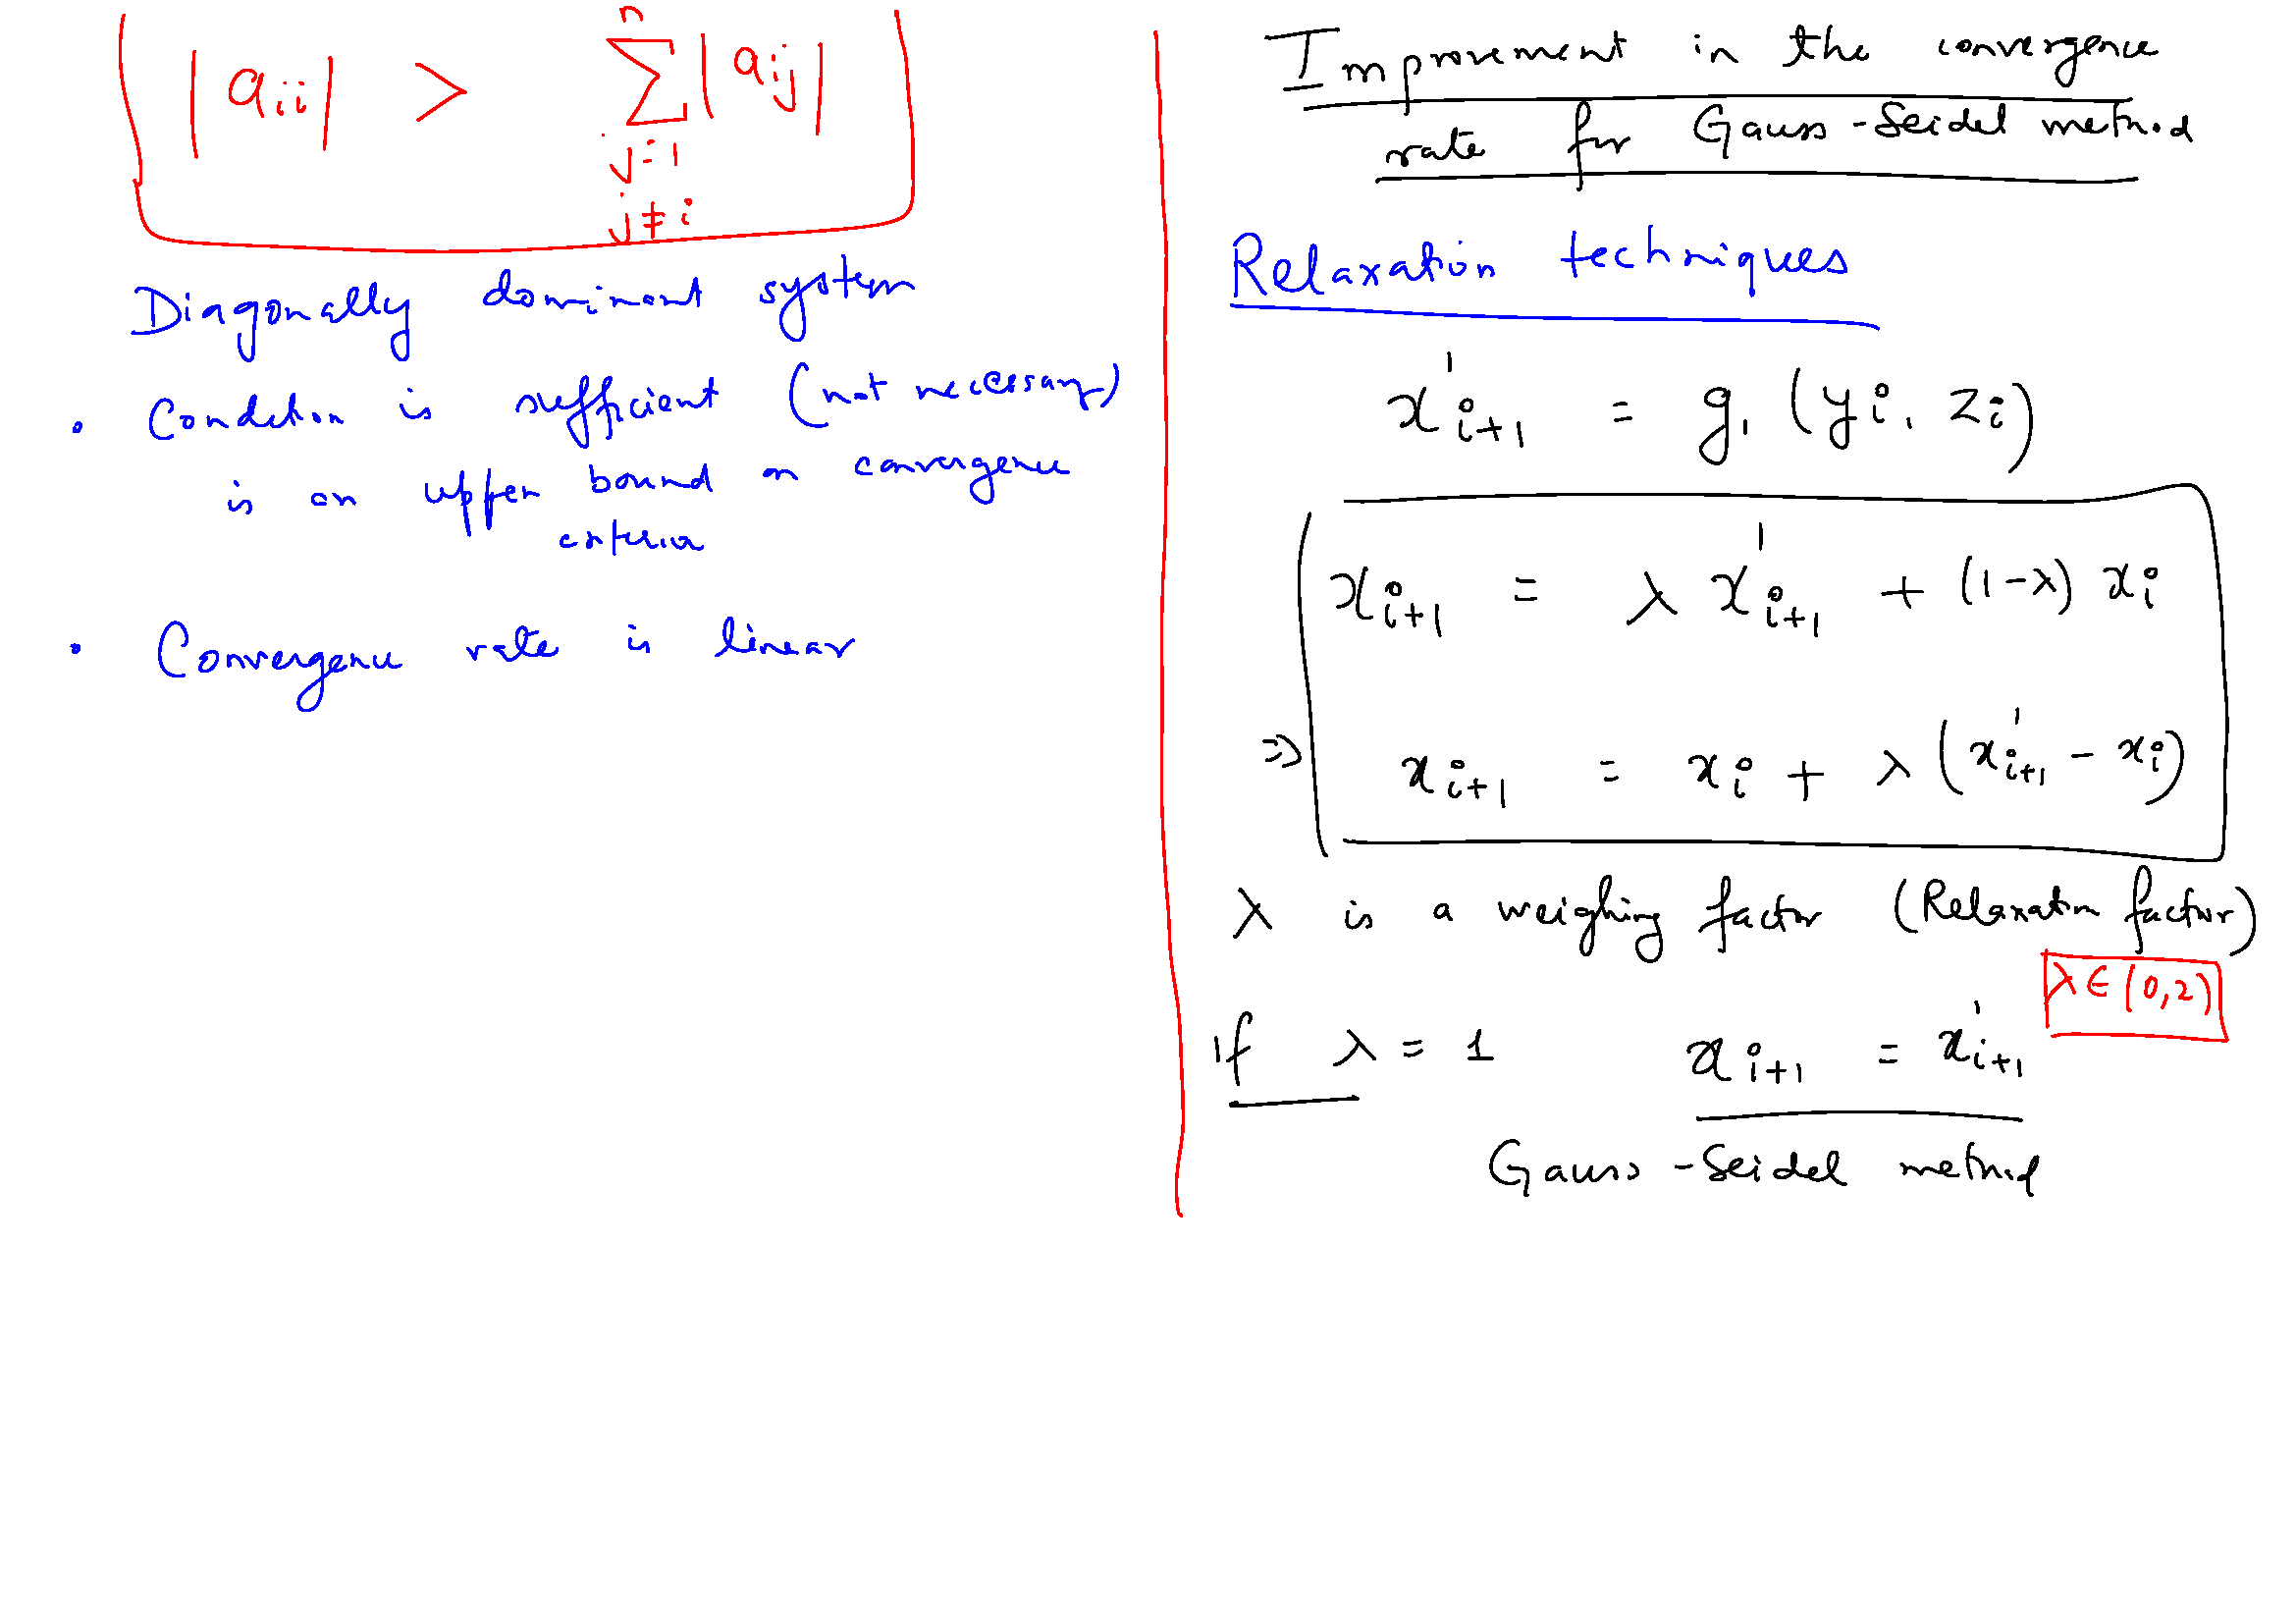 |a_ii| > Σ_{j=1, j≠i}^{n} |a_ij|
Diagonally dominant system
• Condition is sufficient (not necessary)
is an upper bound on convergence
criteria
• Convergence rate is linear
Improvement in the convergence
rate for Gauss-Seidel method
Relaxation techniques
x'_{i+1} = g_1 (y_i, z_i)
x_{i+1} = λ x'_{i+1} + (1-λ) x_i
⇒ x_{i+1} = x_i + λ (x'_{i+1} - x_i)
λ is a weighing factor (Relaxation factor)
λ ∈ (0,2)
if λ = 1 x_{i+1} = x'_{i+1}
Gauss-Seidel method